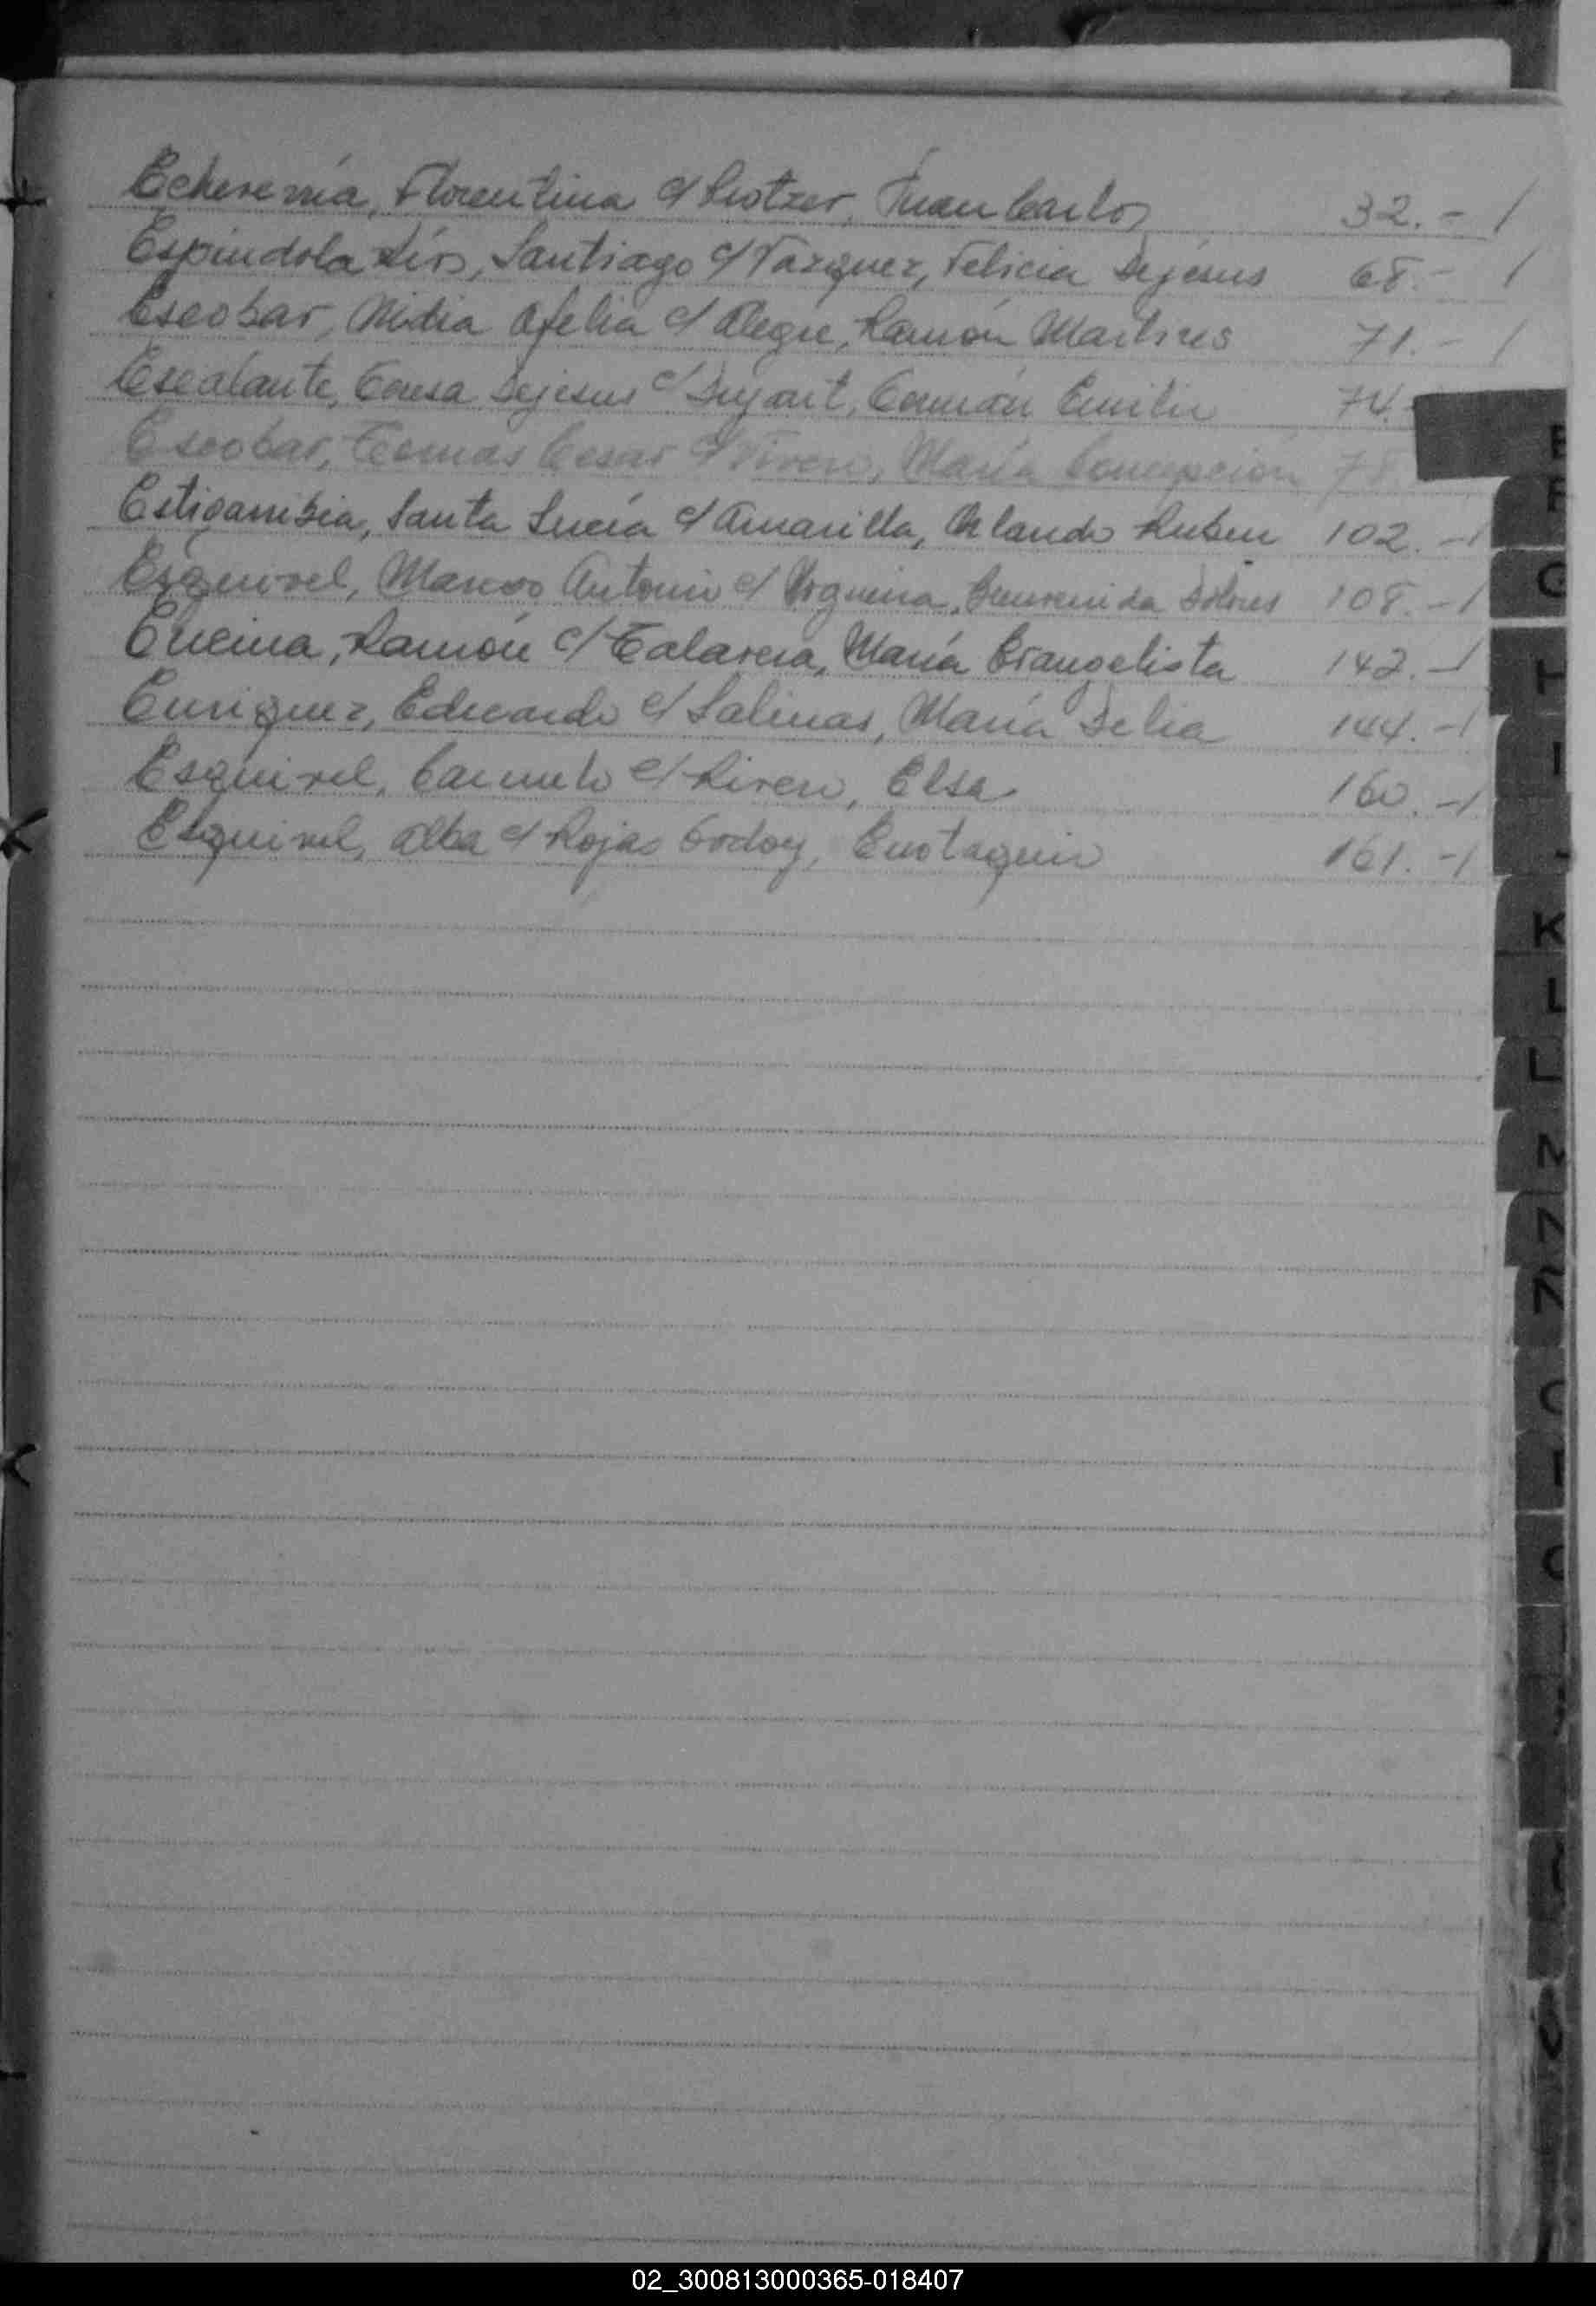 Echeverría, Florentina c/ Krotzer, Juan Carlos 32.- /
Espíndola Ríos, Santiago c/ Vazquez, Felicia Dejesus 68.- /
Escobar, Nidia Ofelia c/ Alegre, Ramón Martires 71.- /
Escalante, Teresa Dejesus c/ Germán Emilio 74.
Escobar, Tomas Cesar c/ María Concepción 78
Estigarribia, Santa Lucía c/ Amarilla, Orlando Ruben 102.-/
Esquivel, Marcos Antonio c/ Noguera, Bienvenida Dolores 108.-/
Encina, Ramón c/ Talavera, María Evangelista 142.-/
Enriquez, Eduardo c/ Salinas, María Delia 144.-/
Esquivel, Carmelo c/ Rivero, Elsa 160.-/
Esquivel, Alba c/ Rojas Godoy, Eustaquio 161.-/
E
F
G
H
I
J
K
L
L
N
N
Ñ
02_300813000365-018407